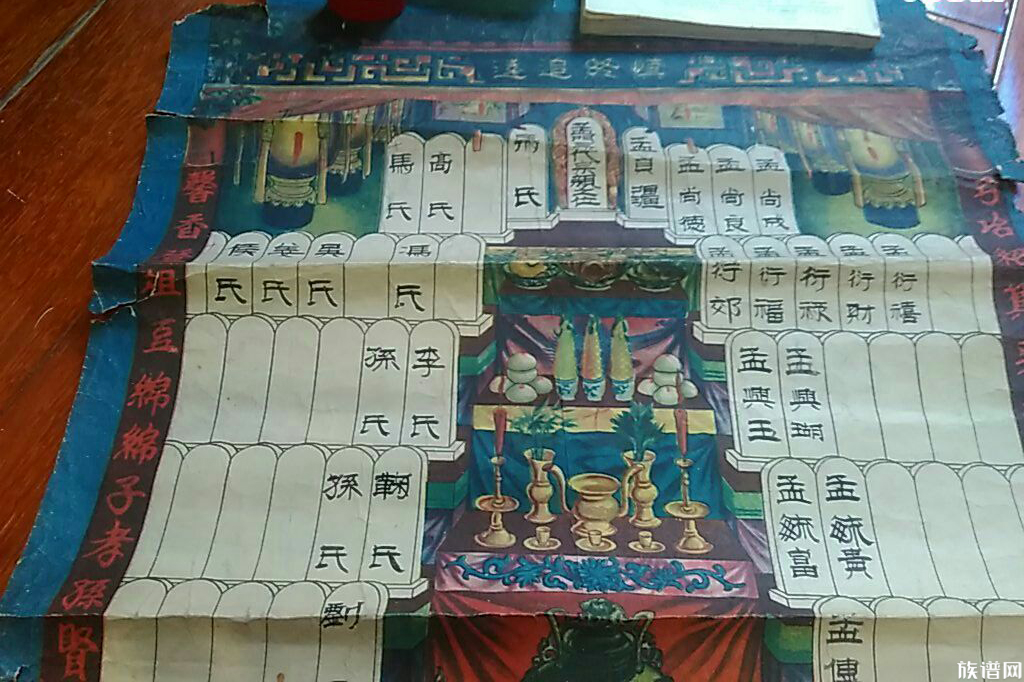 慎終追遠
孟氏宗親之位
馬氏
高氏
馮氏
孟自疆
孟尚德
孟尚良
孟尚成
侯氏
姜氏
吳氏
馮氏
孟衍郊
孟衍福
孟衍祿
孟衍財
孟衍禧
孫氏
李氏
孟興玉
孟興瑚
孫氏
鞠氏
孟毓富
孟毓貴
劉
孟傳
馨香
俎豆綿綿子孝孫賢
族谱网